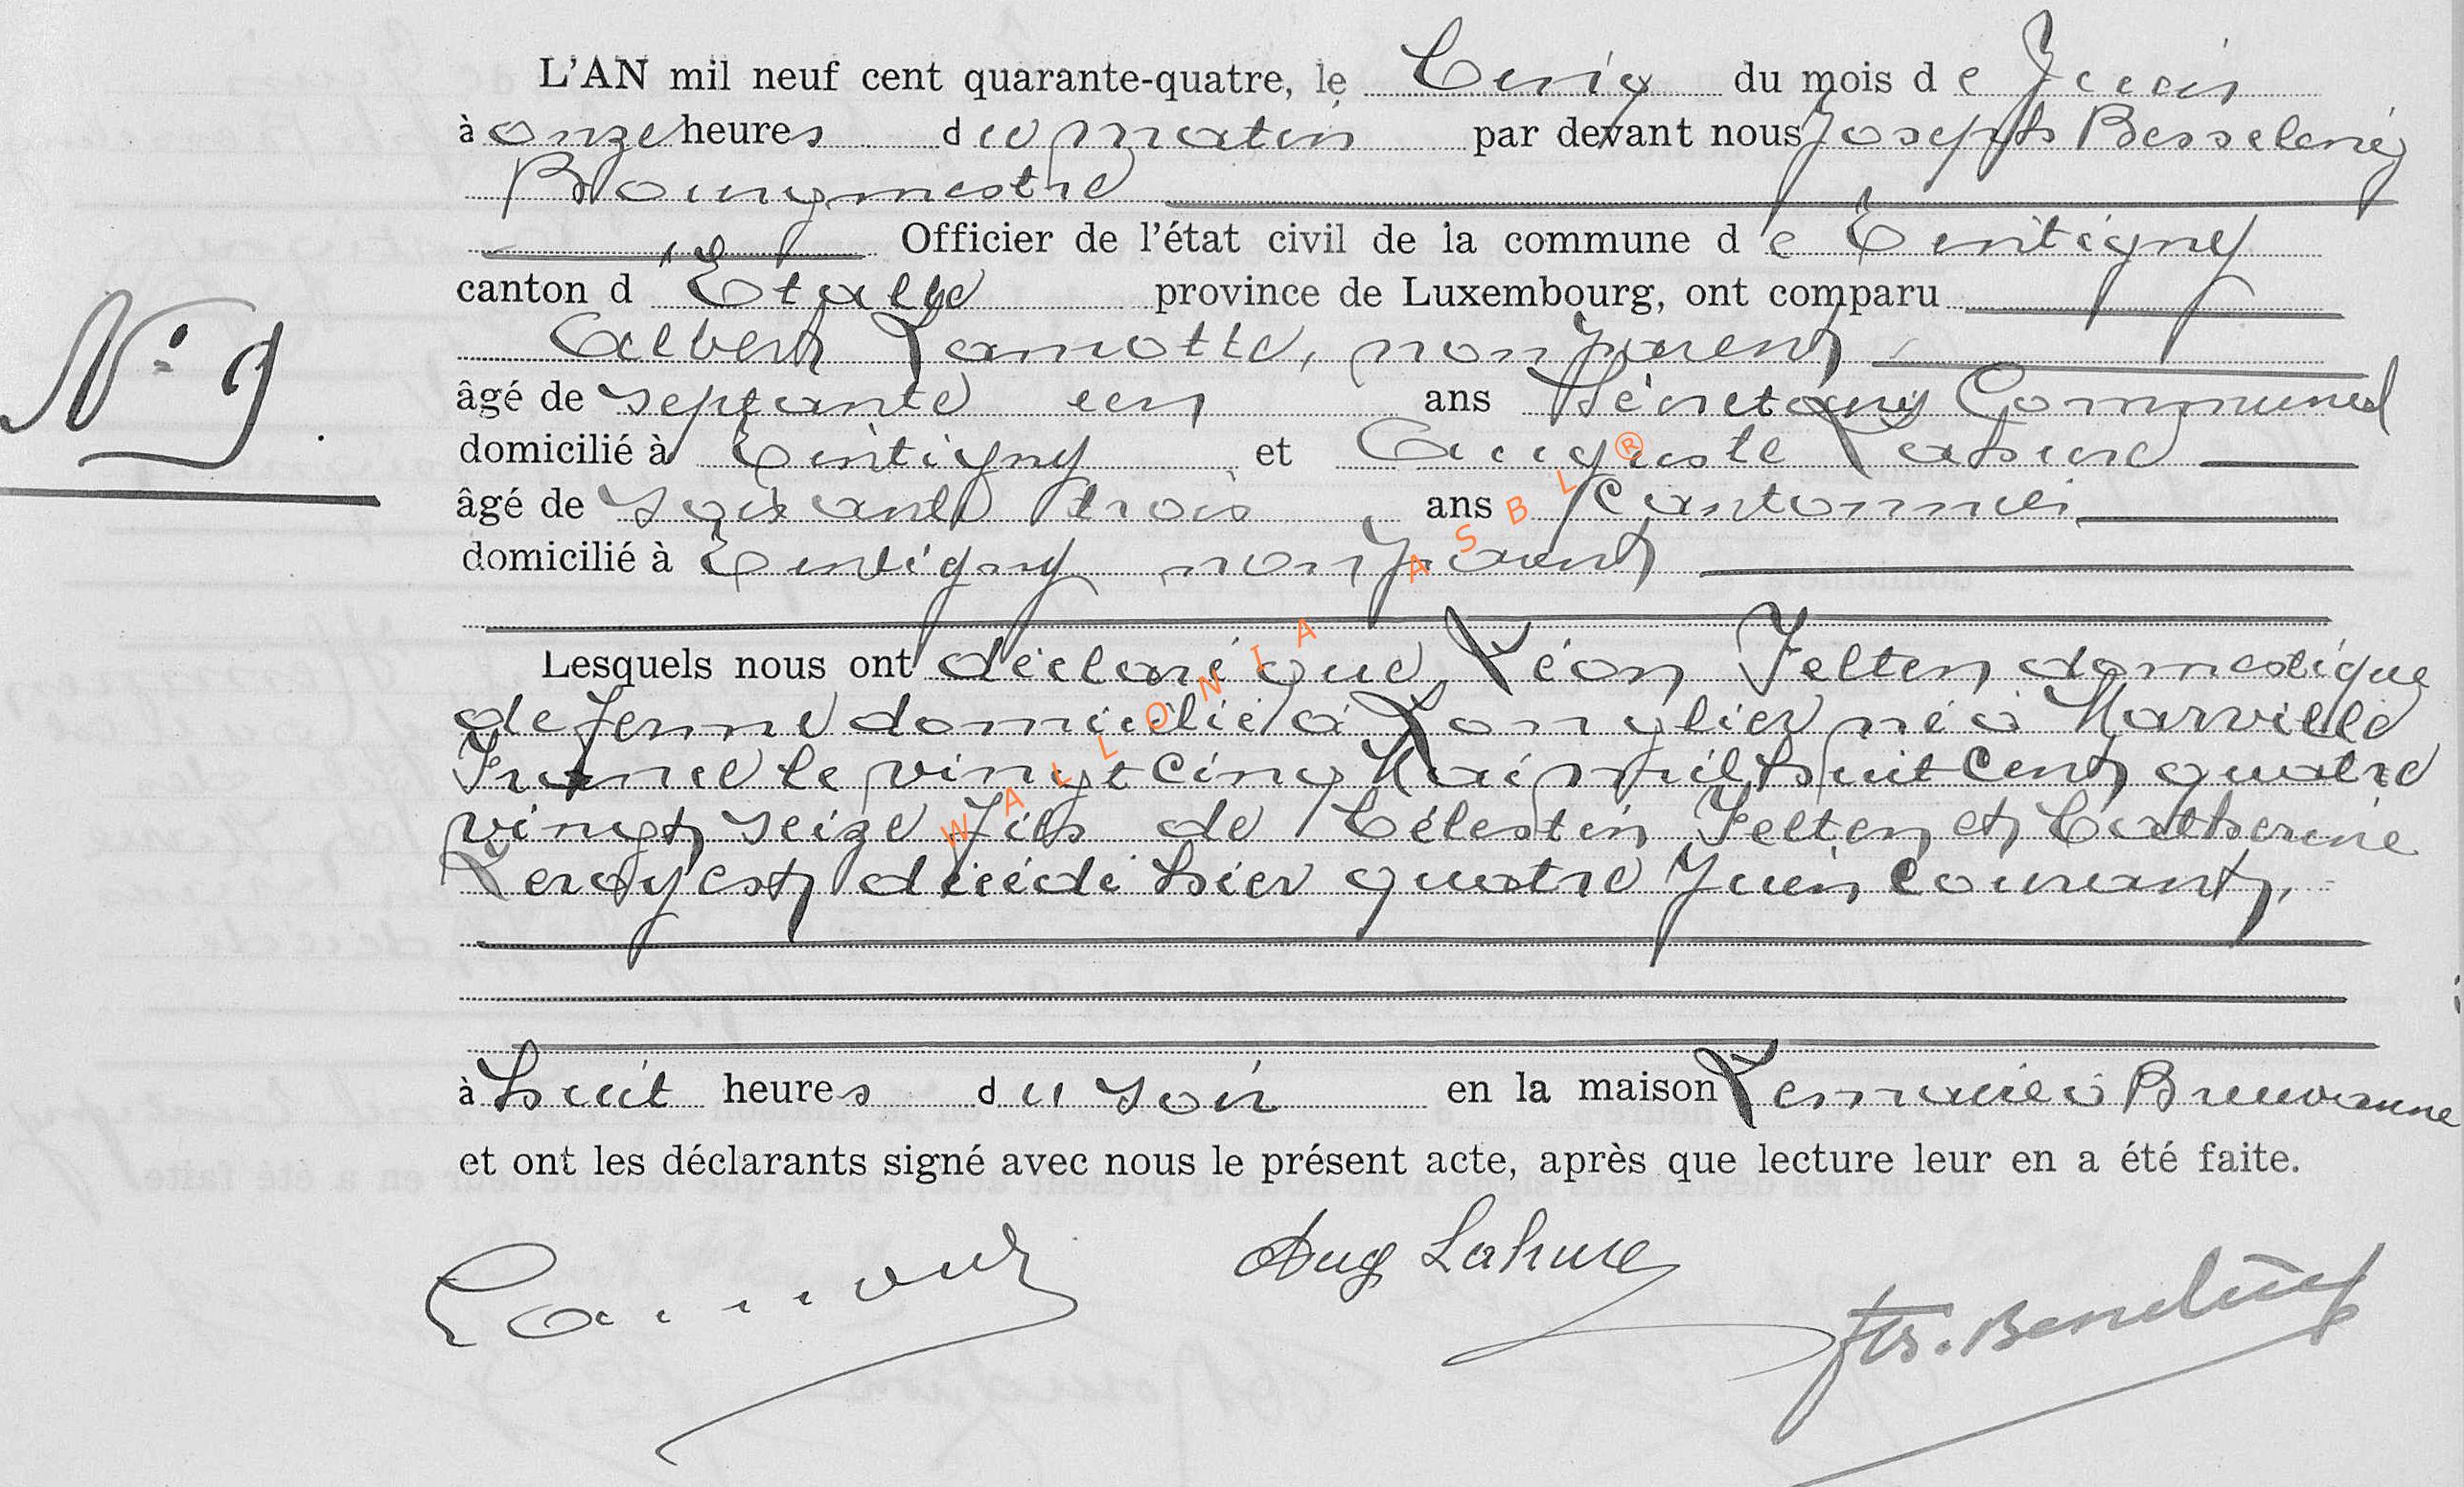 L'AN mil neuf cent quarante-quatre, le Cinq du mois de Juin
à onze heures du matin par devant nous Joseph Besseling
Bourgmestre
Officier de l'état civil de la commune de Tintigny
canton d'Etalle province de Luxembourg, ont comparu
Albert Lamotte, non parent
N° 9
âgé de septante un ans Sécretaire Communal
domicilié à Tintigny et Auguste Lahure
âgé de soixante trois ans Cantonnier
domicilié à Tintigny non parent
Lesquels nous ont déclaré que Léon Felten domestique
de ferme domicilié à Longlier né à Marville
France le vingt cinq Mai mil huit cent quatre
vingt seize fils de Célestin Felten et Catherine
Leroy est décédé hier quatre Juin courant,
à huit heures du soir en la maison à Breuvanne
et ont les déclarants signé avec nous le présent acte, après que lecture leur en a été faite.
Aug Lahure
WALLONIA ASBL ®